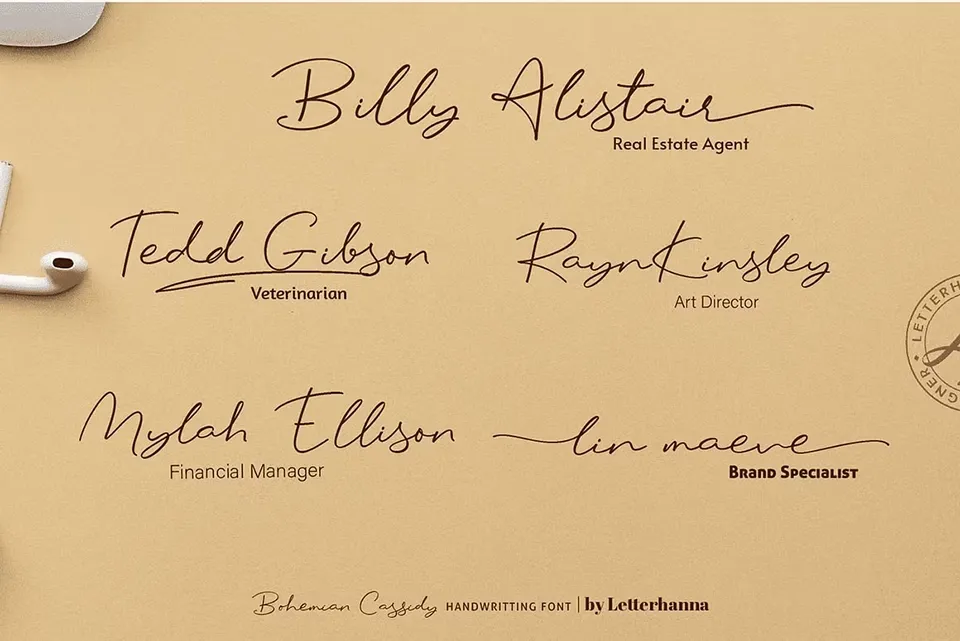 Billy Alistair
Real Estate Agent
Tedd Gibson
Veterinarian
RaynKinsley
Art Director
Mylah Ellison
Financial Manager
lin maeve
Brand Specialist
Bohemian Cassidy HANDWRITTING FONT | by Letterhanna